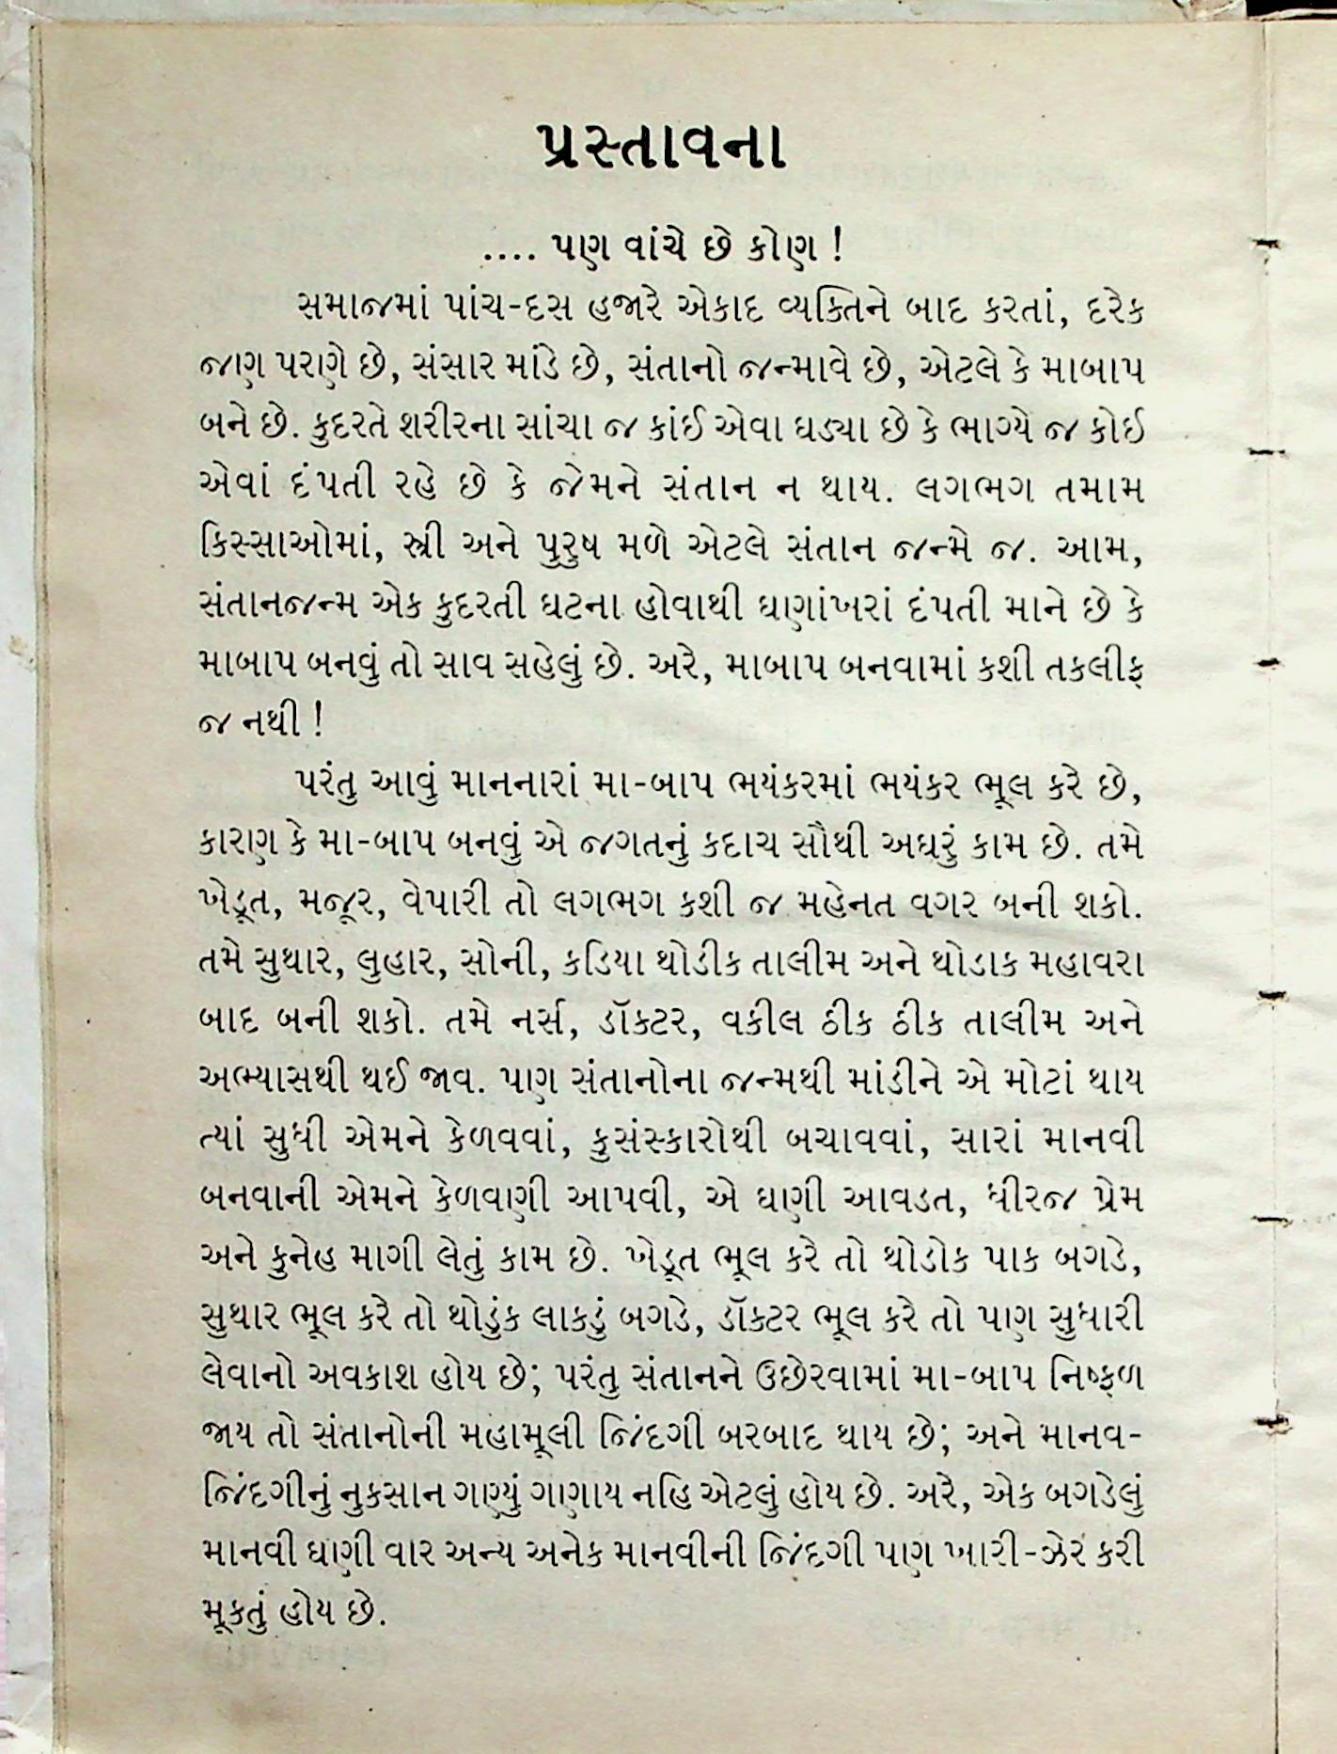 પ્રસ્તાવના
.... પણ વાંચે છે કોણ !
સમાજમાં પાંચ-દસ હજારે એકાદ વ્યક્તિને બાદ કરતાં, દરેક
જણ પરણે છે, સંસાર માંડે છે, સંતાનો જન્માવે છે, એટલે કે માબાપ
બને છે. કુદરતે શરીરના સાંચા જ કાંઈ એવા ઘડ્યા છે કે ભાગ્યે જ કોઈ
એવાં દંપતી રહે છે કે જેમને સંતાન ન થાય. લગભગ તમામ
કિસ્સાઓમાં, સ્ત્રી અને પુરુષ મળે એટલે સંતાન જન્મે જ. આમ,
સંતાનજન્મ એક કુદરતી ઘટના હોવાથી ઘણાંખરાં દંપતી માને છે કે
માબાપ બનવું તો સાવ સહેલું છે. અરે, માબાપ બનવામાં કશી તકલીફ
જ નથી !
પરંતુ આવું માનનારાં મા-બાપ ભયંકરમાં ભયંકર ભૂલ કરે છે,
કારણ કે મા-બાપ બનવું એ જગતનું કદાચ સૌથી અઘરું કામ છે. તમે
ખેડૂત, મજૂર, વેપારી તો લગભગ કશી જ મહેનત વગર બની શકો.
તમે સુથાર, લુહાર, સોની, કડિયા થોડીક તાલીમ અને થોડાક મહાવરા
બાદ બની શકો. તમે નર્સ, ડૉક્ટર, વકીલ ઠીક ઠીક તાલીમ અને
અભ્યાસથી થઈ જાવ. પણ સંતાનોના જન્મથી માંડીને એ મોટાં થાય
ત્યાં સુધી એમને કેળવવાં, કુસંસ્કારોથી બચાવવાં, સારાં માનવી
બનવાની એમને કેળવણી આપવી, એ ઘણી આવડત, ધીરજ પ્રેમ
અને કુનેહ માગી લેતું કામ છે. ખેડૂત ભૂલ કરે તો થોડોક પાક બગડે,
સુથાર ભૂલ કરે તો થોડુંક લાકડું બગડે, ડૉક્ટર ભૂલ કરે તો પણ સુધારી
લેવાનો અવકાશ હોય છે; પરંતુ સંતાનને ઉછેરવામાં મા-બાપ નિષ્ફળ
જાય તો સંતાનોની મહામૂલી જિંદગી બરબાદ થાય છે; અને માનવ-
જિંદગીનું નુકસાન ગણ્યું ગણાય નહિ એટલું હોય છે. અરે, એક બગડેલું
માનવી ઘણી વાર અન્ય અનેક માનવીની જિંદગી પણ ખારી-ઝેર કરી
મૂકતું હોય છે.